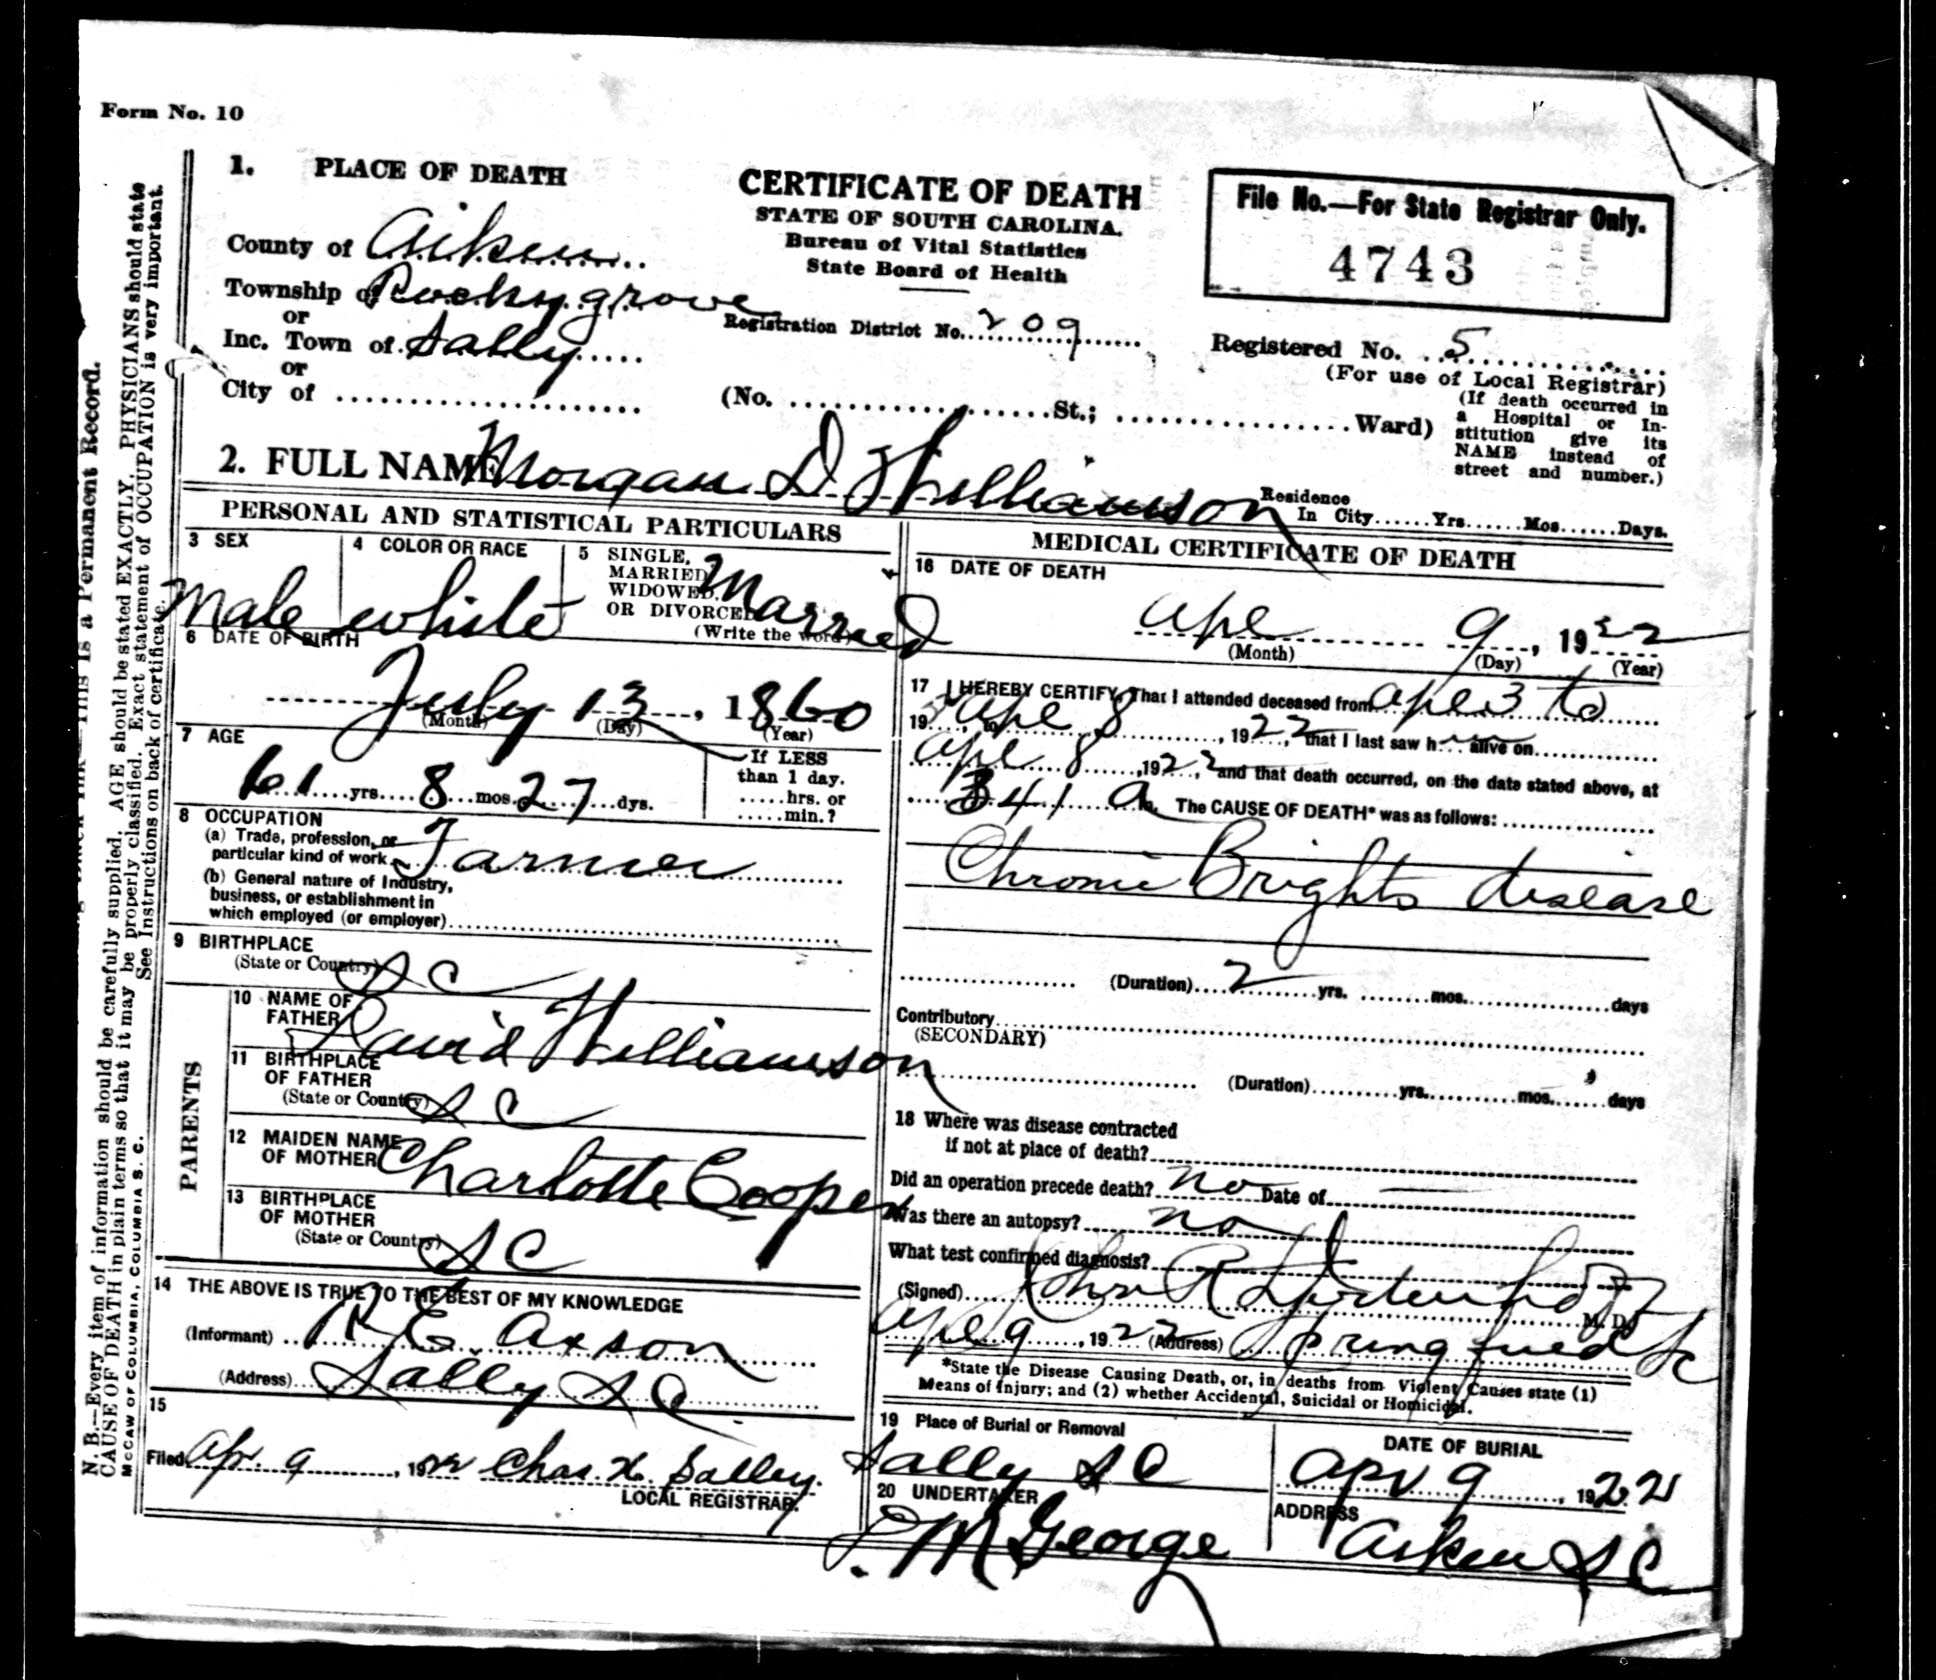 Form No. 10
1. PLACE OF DEATH
County of Aiken
Township of Rocky grove
or
Inc. Town of Sally
or
City of
CERTIFICATE OF DEATH
STATE OF SOUTH CAROLINA.
Bureau of Vital Statistics
State Board of Health
File No.—For State Registrar Only.
4743
Registration District No. 209
Registered No. 5
(For use of Local Registrar)
(No. St.; Ward)
(If death occurred in
a Hospital or In-
stitution give its
NAME instead of
street and number.)
2. FULL NAME Morgan D Williamson
Residence
In City Yrs Mos Days.
PERSONAL AND STATISTICAL PARTICULARS
3 SEX
Male
4 COLOR OR RACE
white
5 SINGLE,
MARRIED
WIDOWED,
OR DIVORCED
Married
(Write the word)
6 DATE OF BIRTH
July 13, 1860
(Month) (Day) (Year)
7 AGE
61 yrs. 8 mos. 27 dys.
If LESS
than 1 day.
hrs. or
min.?
8 OCCUPATION
(a) Trade, profession, or
particular kind of work Farmer
(b) General nature of Industry,
business, or establishment in
which employed (or employer)
9 BIRTHPLACE
(State or Country) S C
PARENTS
10 NAME OF
FATHER David Williamson
11 BIRTHPLACE
OF FATHER
(State or Country) S C
12 MAIDEN NAME
OF MOTHER Charlotte Cooper
13 BIRTHPLACE
OF MOTHER
(State or Country) S C
14 THE ABOVE IS TRUE TO THE BEST OF MY KNOWLEDGE
(Informant) R E Axson
(Address) Sally S C
15
Filed Apr. 9, 1922 Chas. H. Salley.
LOCAL REGISTRAR.
MEDICAL CERTIFICATE OF DEATH
16 DATE OF DEATH
Apl 9, 1922
(Month) (Day) (Year)
17 I HEREBY CERTIFY, That I attended deceased from Apl 3 to
19 , to Apl 8, 1922, that I last saw him alive on
Apl 8, 1922, and that death occurred, on the date stated above, at
341 a m. The CAUSE OF DEATH* was as follows:
Chronic Brights disease
(Duration) 2 yrs. mos. days
Contributory
(SECONDARY)
(Duration) yrs. mos. days
18 Where was disease contracted
if not at place of death?
Did an operation precede death? no Date of —
Was there an autopsy? no
What test confirmed diagnosis?
(Signed) John R M. D.
Apl 9, 1922 (Address) Springfield S C
*State the Disease Causing Death, or, in deaths from Violent Causes state (1)
Means of Injury; and (2) whether Accidental, Suicidal or Homicidal.
19 Place of Burial or Removal
Sally S C
DATE OF BURIAL
Apr 9, 1922
20 UNDERTAKER
J. M George
ADDRESS
Aiken S C
N. B.—Every item of information should be carefully supplied. AGE should be stated EXACTLY. PHYSICIANS should state
CAUSE OF DEATH in plain terms so that it may be properly classified. Exact statement of OCCUPATION is very important.
See Instructions on back of certificate.
McCAW OF COLUMBIA, COLUMBIA S. C.
This is a Permanent Record.